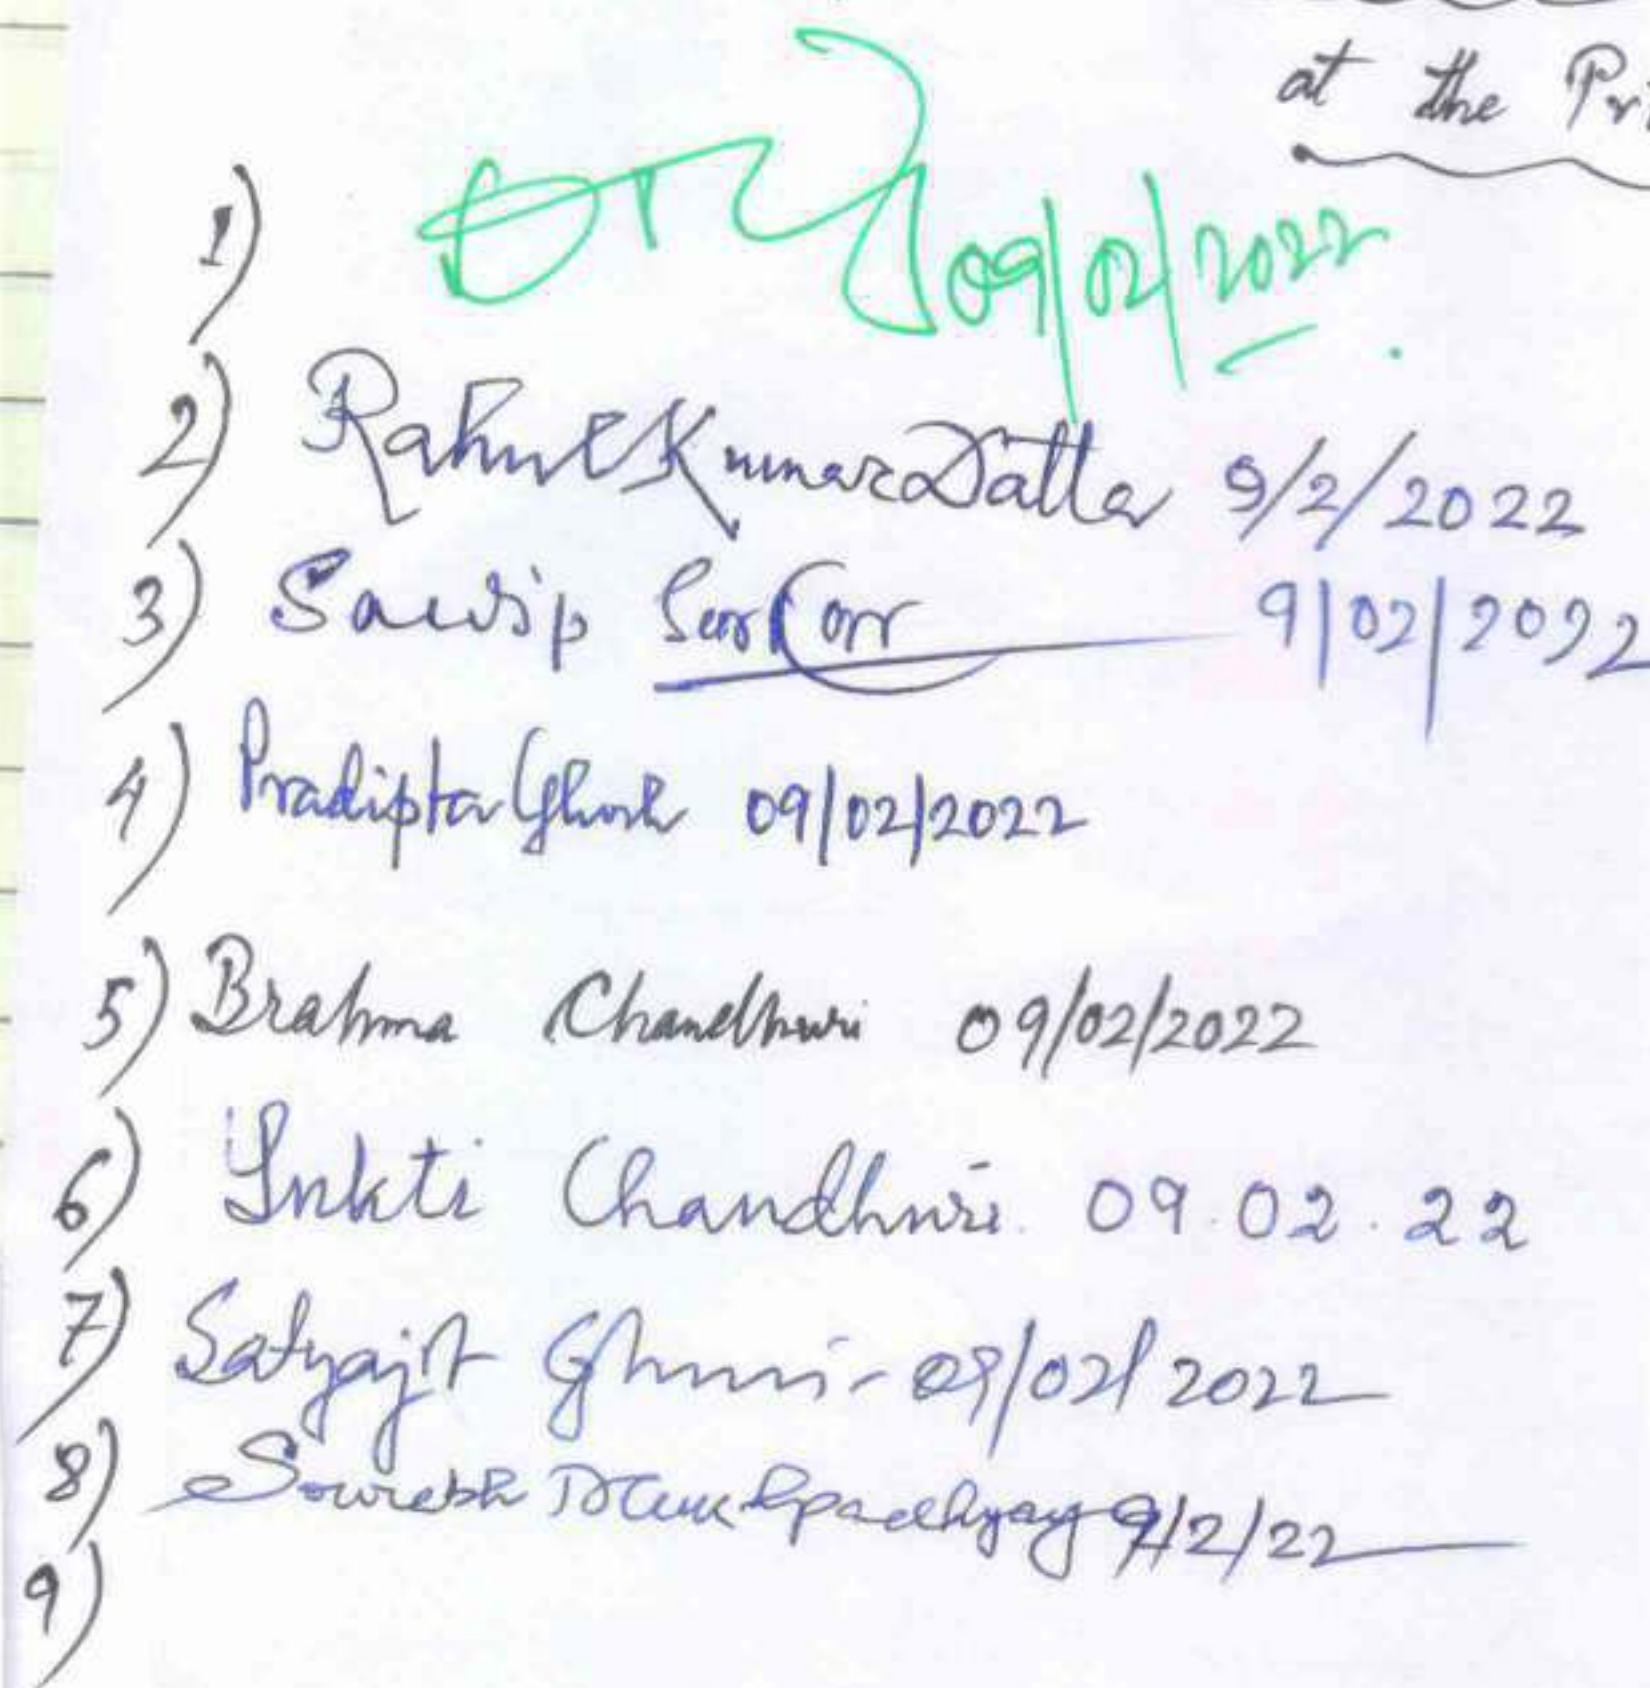 at the Pri
1) 09/02/2022.
2) Rahul Kumar Datta 9/2/2022
3) Sandip Sarkar 9/02/2022
4) Pradipta Ghosh 09/02/2022
5) Brahma Chaudhuri 09/02/2022
6) Sukti Chaudhuri. 09.02.22
7) Satyajit Ghuri - 09/02/2022
8) 9/2/22
9)